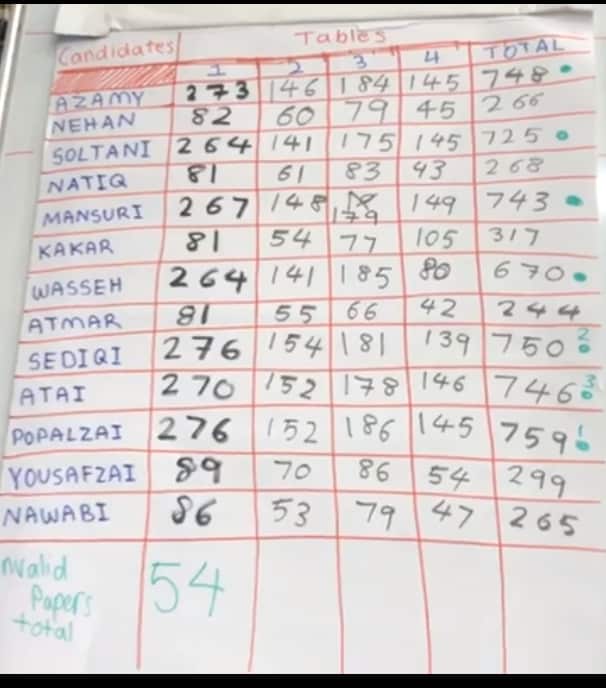 Candidates Tables
1 2 3 4 TOTAL
AZAMY 273 146 184 145 748
NEHAN 82 60 79 45 266
SOLTANI 264 141 175 145 725
NATIQ 81 61 83 43 268
MANSURI 267 148 179 149 743
KAKAR 81 54 77 105 317
WASSEH 264 141 185 80 670
ATMAR 81 55 66 42 244
SEDIQI 276 154 181 139 750 2
ATAI 270 152 178 146 746 3
POPALZAI 276 152 186 145 759 1
YOUSAFZAI 89 70 86 54 299
NAWABI 86 53 79 47 265
nvalid
Papers 54
total